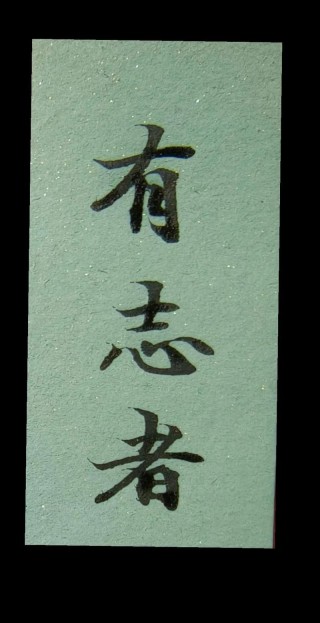 有志者